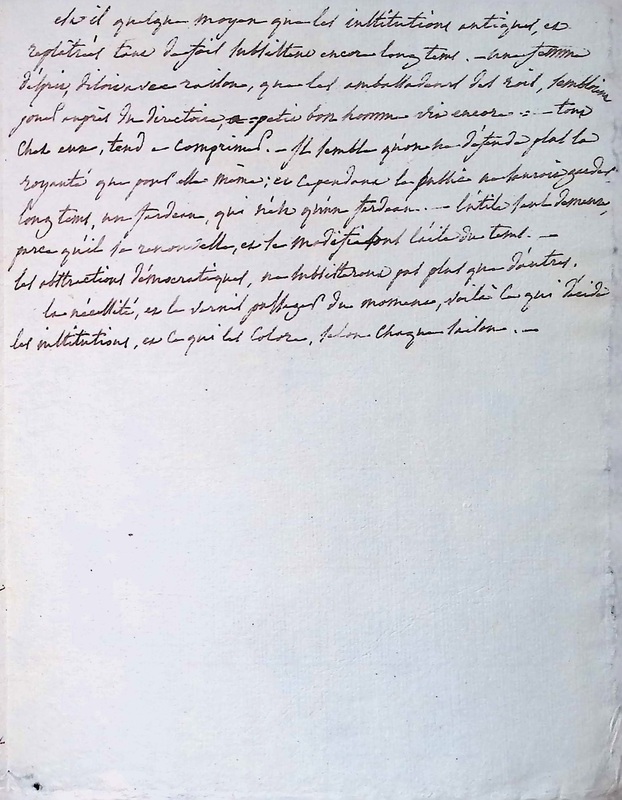 est il quelque moyen que les institutions antiques, et
replatrés tant de fois subsistent encore longtems. - une femme
d'esprit, disoit avec raison, que les ambassadeurs des rois, sembloient
jouer auprès du directoire, a petit bon homme vit encore =- tout
chez eux, tend a comprimer. - Il semble qu'on ne défende plus la
royauté que pour elle même ; et cependant le public ne sauroit garder
longtems, un fardeau, qui n'est qu'un fardeau. -- l'utile seul demeure,
parce qu'il se renouvelle, et se modifie sous l'aile du tems. -
les abstractions démocratiques, ne subsisteront pas plus que d'autres.
la nécessité, et le vernis passager du moment, voilà ce qui décide
les institutions, et ce qui les colore, selon chaque saison. -